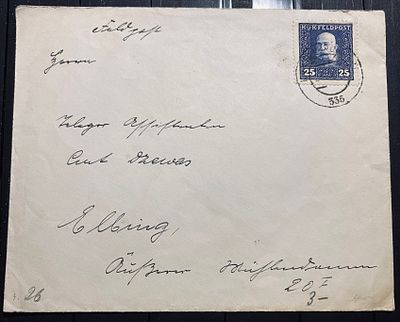 Feldpost
K.U.K. FELDPOST
25 25
Herrn
336
Curt Dzewas
Elbing,
Äußerer Mühlendamm
20 F
3-
26